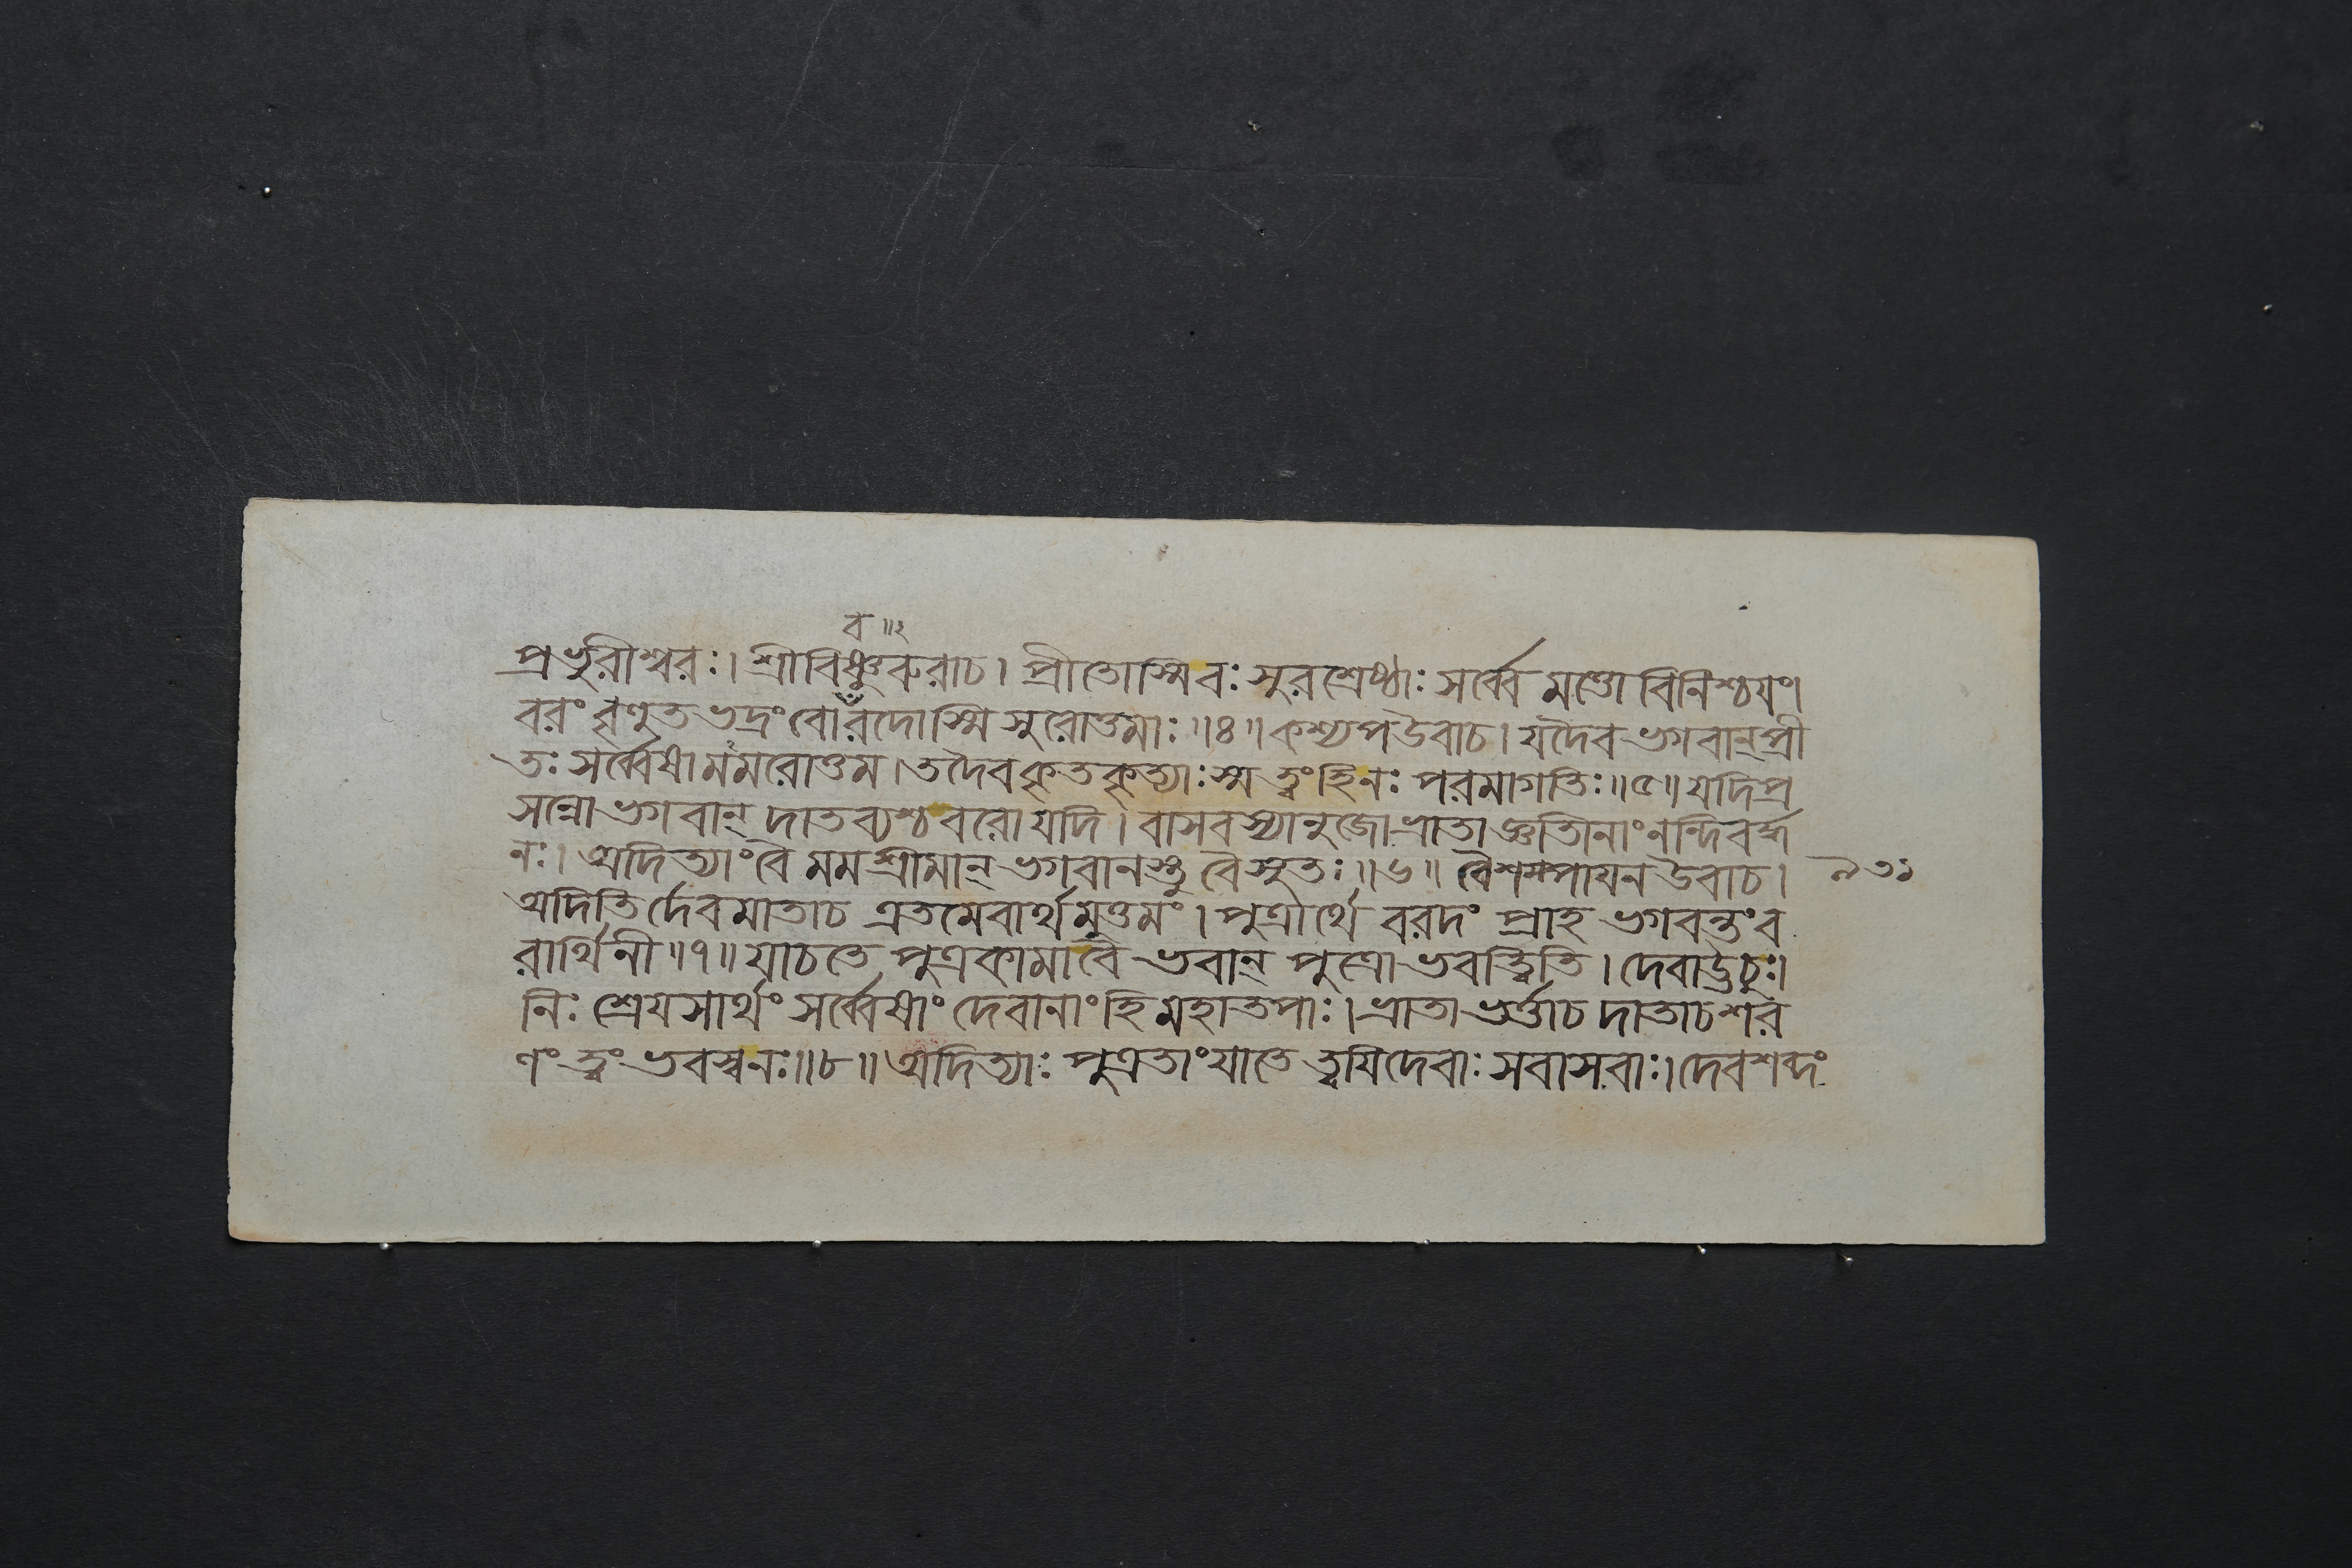 ব ॥২
প্রভুরীশ্বরঃ। শ্রীবিষ্ণুবরুরাচ। প্রীতোস্মিবঃ সুরশ্রেষ্ঠাঃ সর্ব্বে মত্তো বিনিশ্চয়ং।
বরং বৃণুত ভদ্রং বোঁরদোস্মি সুরোত্তমাঃ॥৪॥ কশ্যপউবাচ। যদৈব ভগবান্প্রী
তঃ সর্ব্বেষামমরোত্তম। তদৈবকৃতকৃত্যাঃস্ম ত্বংহিনঃ পরমাগতিঃ॥৫॥ যদিপ্র
সন্নো ভগবান্ দাতব্যশ্চ বরো যদি। বাসবস্যানুজো ভ্রাতা জ্ঞাতিনাং নন্দিবর্দ্ধ
নঃ। অদিত্যাংবৈ মমশ্রীমান্ ভগবানস্তু বৈসুতঃ॥৬॥ বৈশম্পায়ন উবাচ।
৯৩১
অদিতির্দেবমাতাচ এতমেবার্থমুত্তমং। পুত্রার্থে বরদং প্রাহ ভগবন্তংব
রার্থিনী॥৭॥ যাচতে পুত্রকামাবৈ ভবান্ পুত্রো ভবত্ত্বিতি। দেবাউচুঃ।
নিঃ শ্রেয়সার্থং সর্ব্বেষাং দেবানাংহি মহাতপাঃ। ভ্রাতা ভর্ত্তাচ দাতাচশর
ণং ত্বং ভবস্বনঃ॥৮॥ অদিত্যাঃ পুত্রতাংযাতে ত্বয়িদেবাঃ সবাসবাঃ। দেবশব্দং